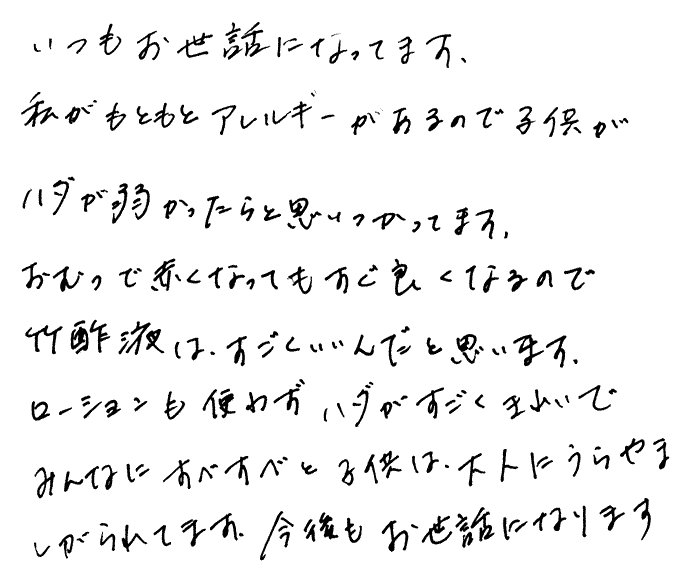 いつもお世話になってます、
私がもともとアレルギーがあるので子供が
ハダが弱かったらと思いつかってます、
おむつで赤くなってもすぐ良くなるので
竹酢液は、すごくいいんだと思います、
ローションも使わず ハダがすごくきれいで
みんなにすべすべと子供は、大人にうらやま
しがられてます、今後もお世話になります